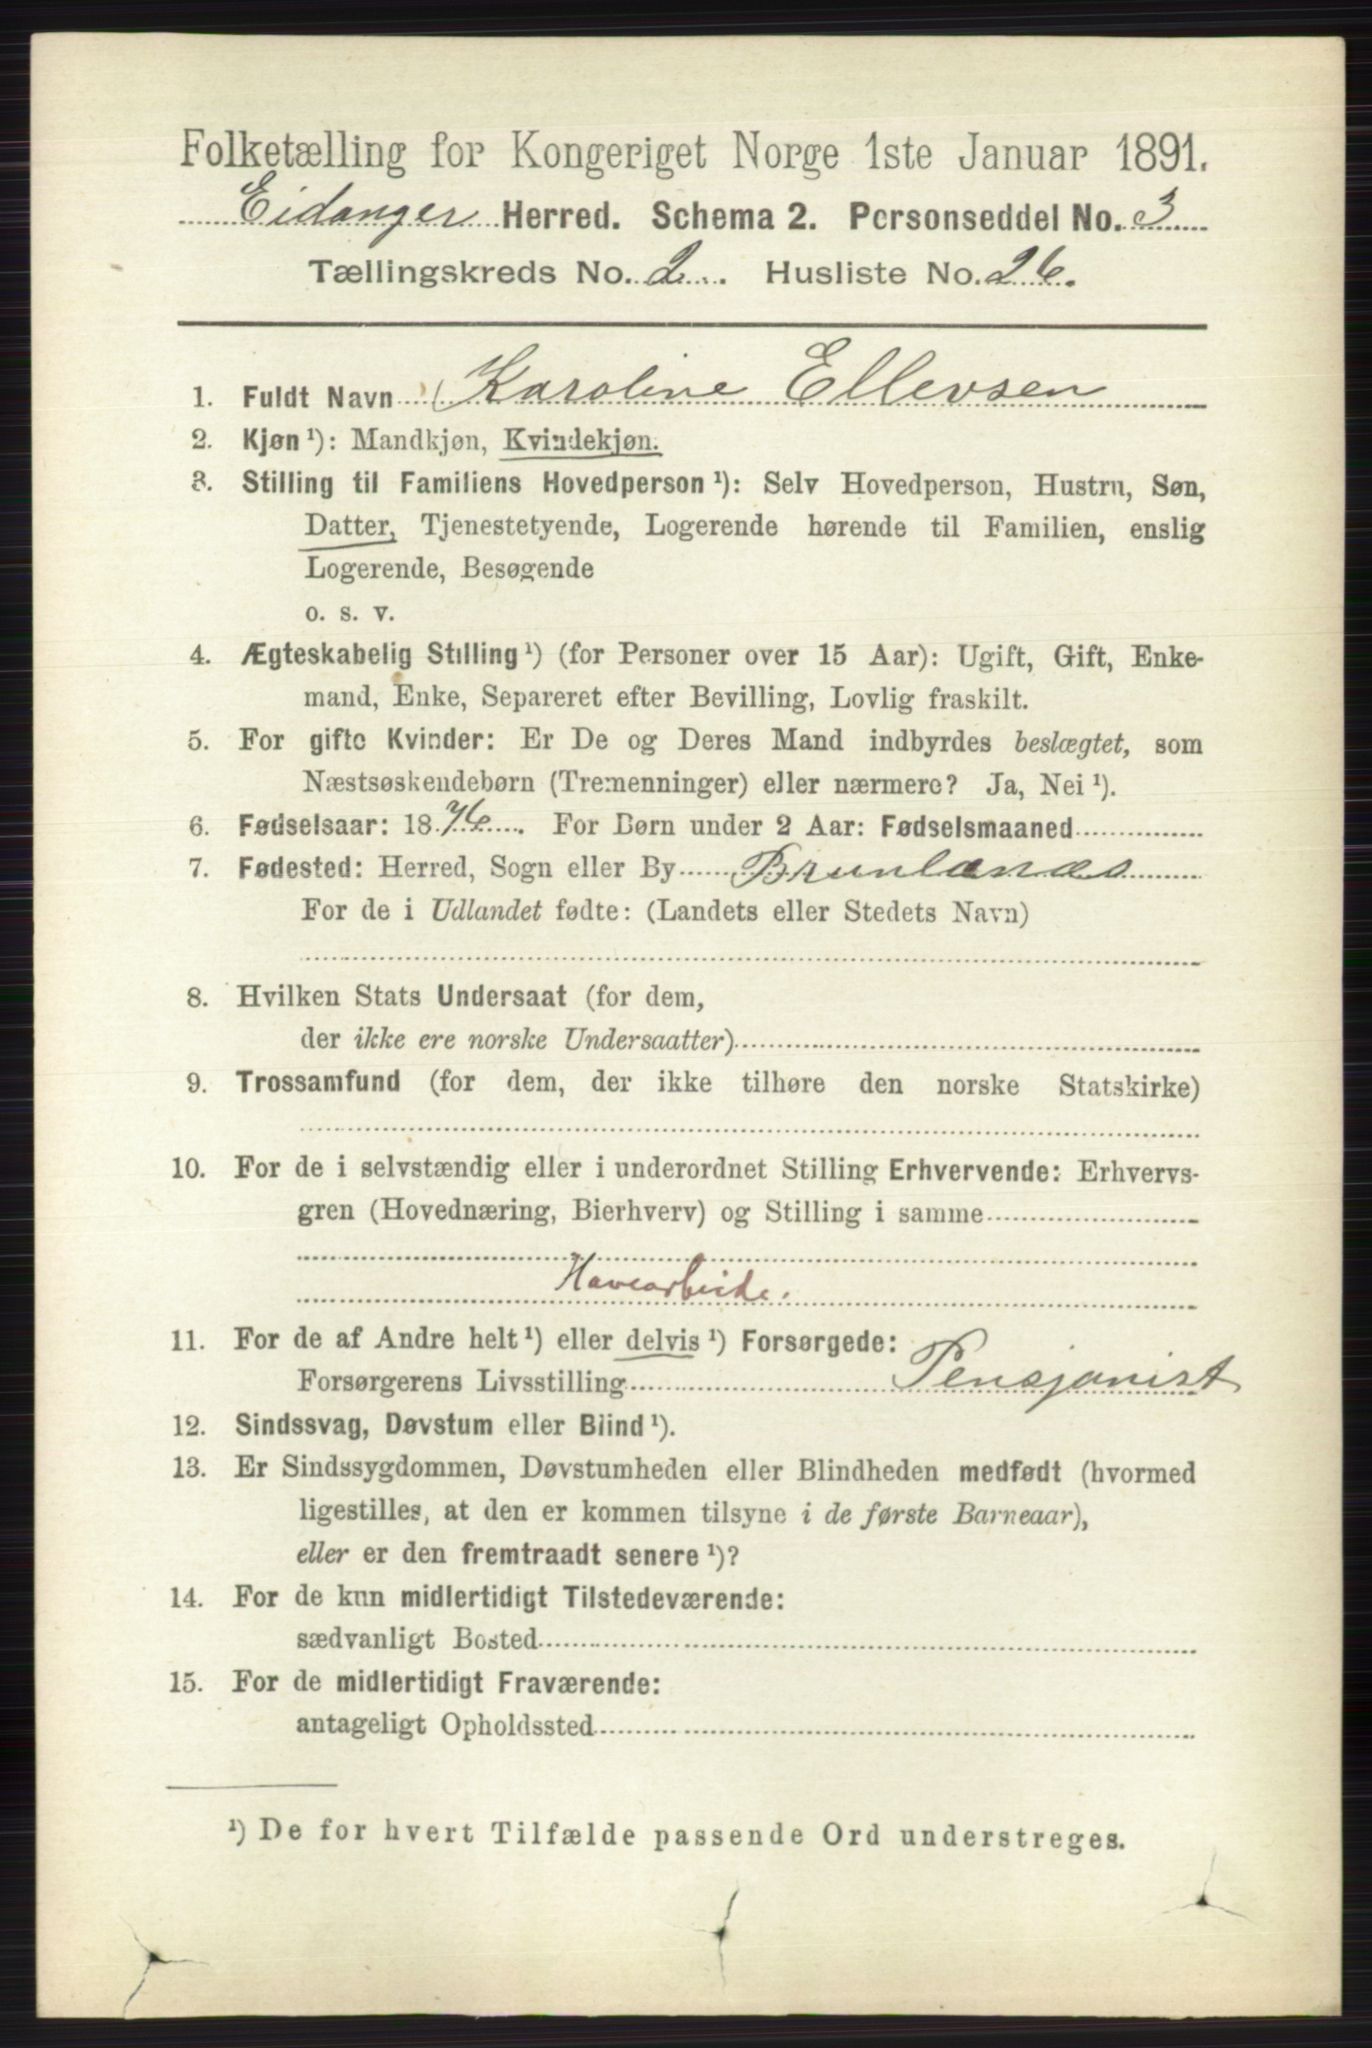 Folketælling for Kongeriget Norge 1ste Januar 1891.
Eidanger Herred. Schema 2. Personseddel No. 3
Tællingskreds No. 2. Husliste No. 26.
1. Fuldt Navn Karoline Ellevsen
2. Kjøn ¹): Mandkjøn, Kvindekjøn.
3. Stilling til Familiens Hovedperson ¹): Selv Hovedperson, Hustru, Søn,
Datter, Tjenestetyende, Logerende hørende til Familien, enslig
Logerende, Besøgende
o. s. v.
4. Ægteskabelig Stilling ¹) (for Personer over 15 Aar): Ugift, Gift, Enke-
mand, Enke, Separeret efter Bevilling, Lovlig fraskilt.
5. For gifte Kvinder: Er De og Deres Mand indbyrdes beslægtet, som
Næstsøskendebørn (Tremenninger) eller nærmere? Ja, Nei ¹).
6. Fødselsaar: 1876. For Børn under 2 Aar: Fødselsmaaned
7. Fødested: Herred, Sogn eller By Brunlanæs
For de i Udlandet fødte: (Landets eller Stedets Navn)
8. Hvilken Stats Undersaat (for dem,
der ikke ere norske Undersaatter)
9. Trossamfund (for dem, der ikke tilhøre den norske Statskirke)
10. For de i selvstændig eller i underordnet Stilling Erhvervende: Erhvervs-
gren (Hovednæring, Bierhverv) og Stilling i samme
Havearbeide.
11. For de af Andre helt ¹) eller delvis ¹) Forsørgede:
Forsørgerens Livsstilling Pensjonist
12. Sindssvag, Døvstum eller Blind ¹).
13. Er Sindssygdommen, Døvstumheden eller Blindheden medfødt (hvormed
ligestilles, at den er kommen tilsyne i de første Barneaar),
eller er den fremtraadt senere ¹)?
14. For de kun midlertidigt Tilstedeværende:
sædvanligt Bosted
15. For de midlertidigt Fraværende:
antageligt Opholdssted
¹) De for hvert Tilfælde passende Ord understreges.